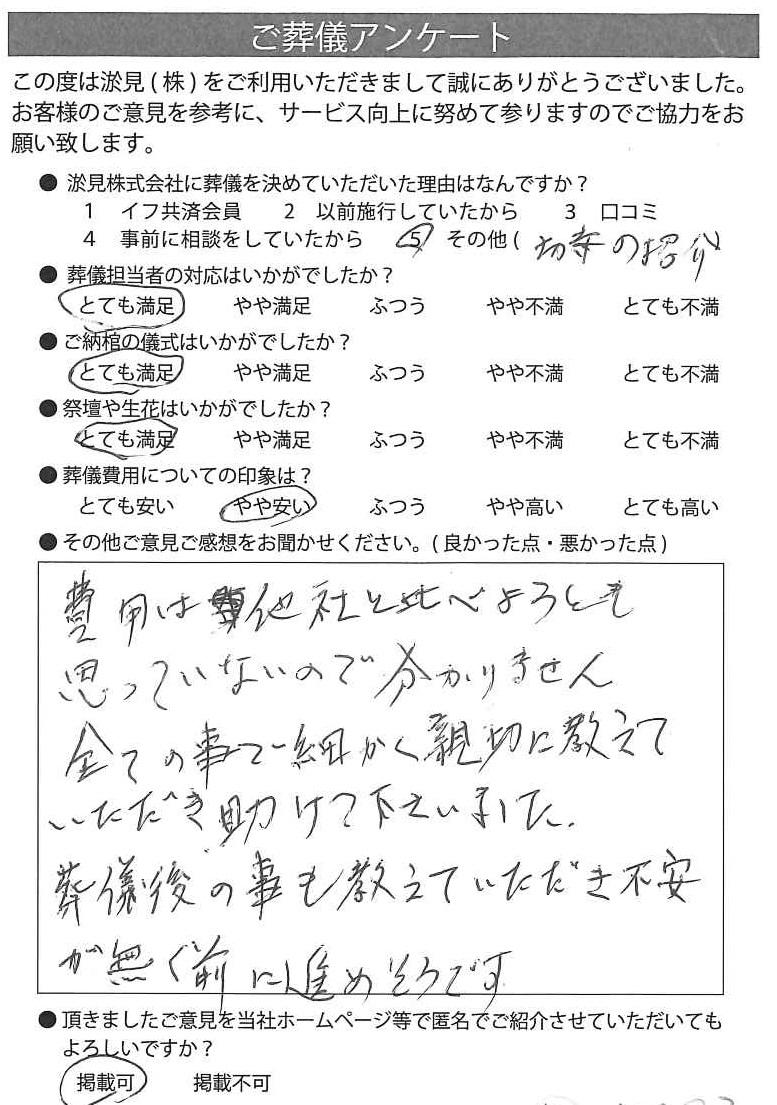 ご葬儀アンケート
この度は淤見(株)をご利用いただきまして誠にありがとうございました。
お客様のご意見を参考に、サービス向上に努めて参りますのでご協力をお
願い致します。
● 淤見株式会社に葬儀を決めていただいた理由はなんですか？
1 イフ共済会員 2 以前施行していたから 3 口コミ
4 事前に相談をしていたから 5 その他( の紹介
● 葬儀担当者の対応はいかがでしたか？
とても満足 やや満足 ふつう やや不満 とても不満
● ご納棺の儀式はいかがでしたか？
とても満足 やや満足 ふつう やや不満 とても不満
● 祭壇や生花はいかがでしたか？
とても満足 やや満足 ふつう やや不満 とても不満
● 葬儀費用についての印象は？
とても安い やや安い ふつう やや高い とても高い
● その他ご意見ご感想をお聞かせください。(良かった点・悪かった点)
費用は他社と比べようとも
思っていないので分かりません
全ての事で細かく親切に教えて
いただき助けて下さいました.
葬儀後の事も教えていただき不安
が無く前に進めそうです
● 頂きましたご意見を当社ホームページ等で匿名でご紹介させていただいても
よろしいですか？
掲載可 掲載不可